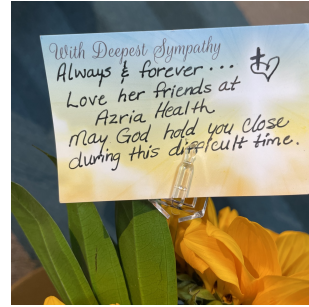 With Deepest Sympathy
Always & forever...
Love her friends at
Azria Health
May God hold you close
during this difficult time.